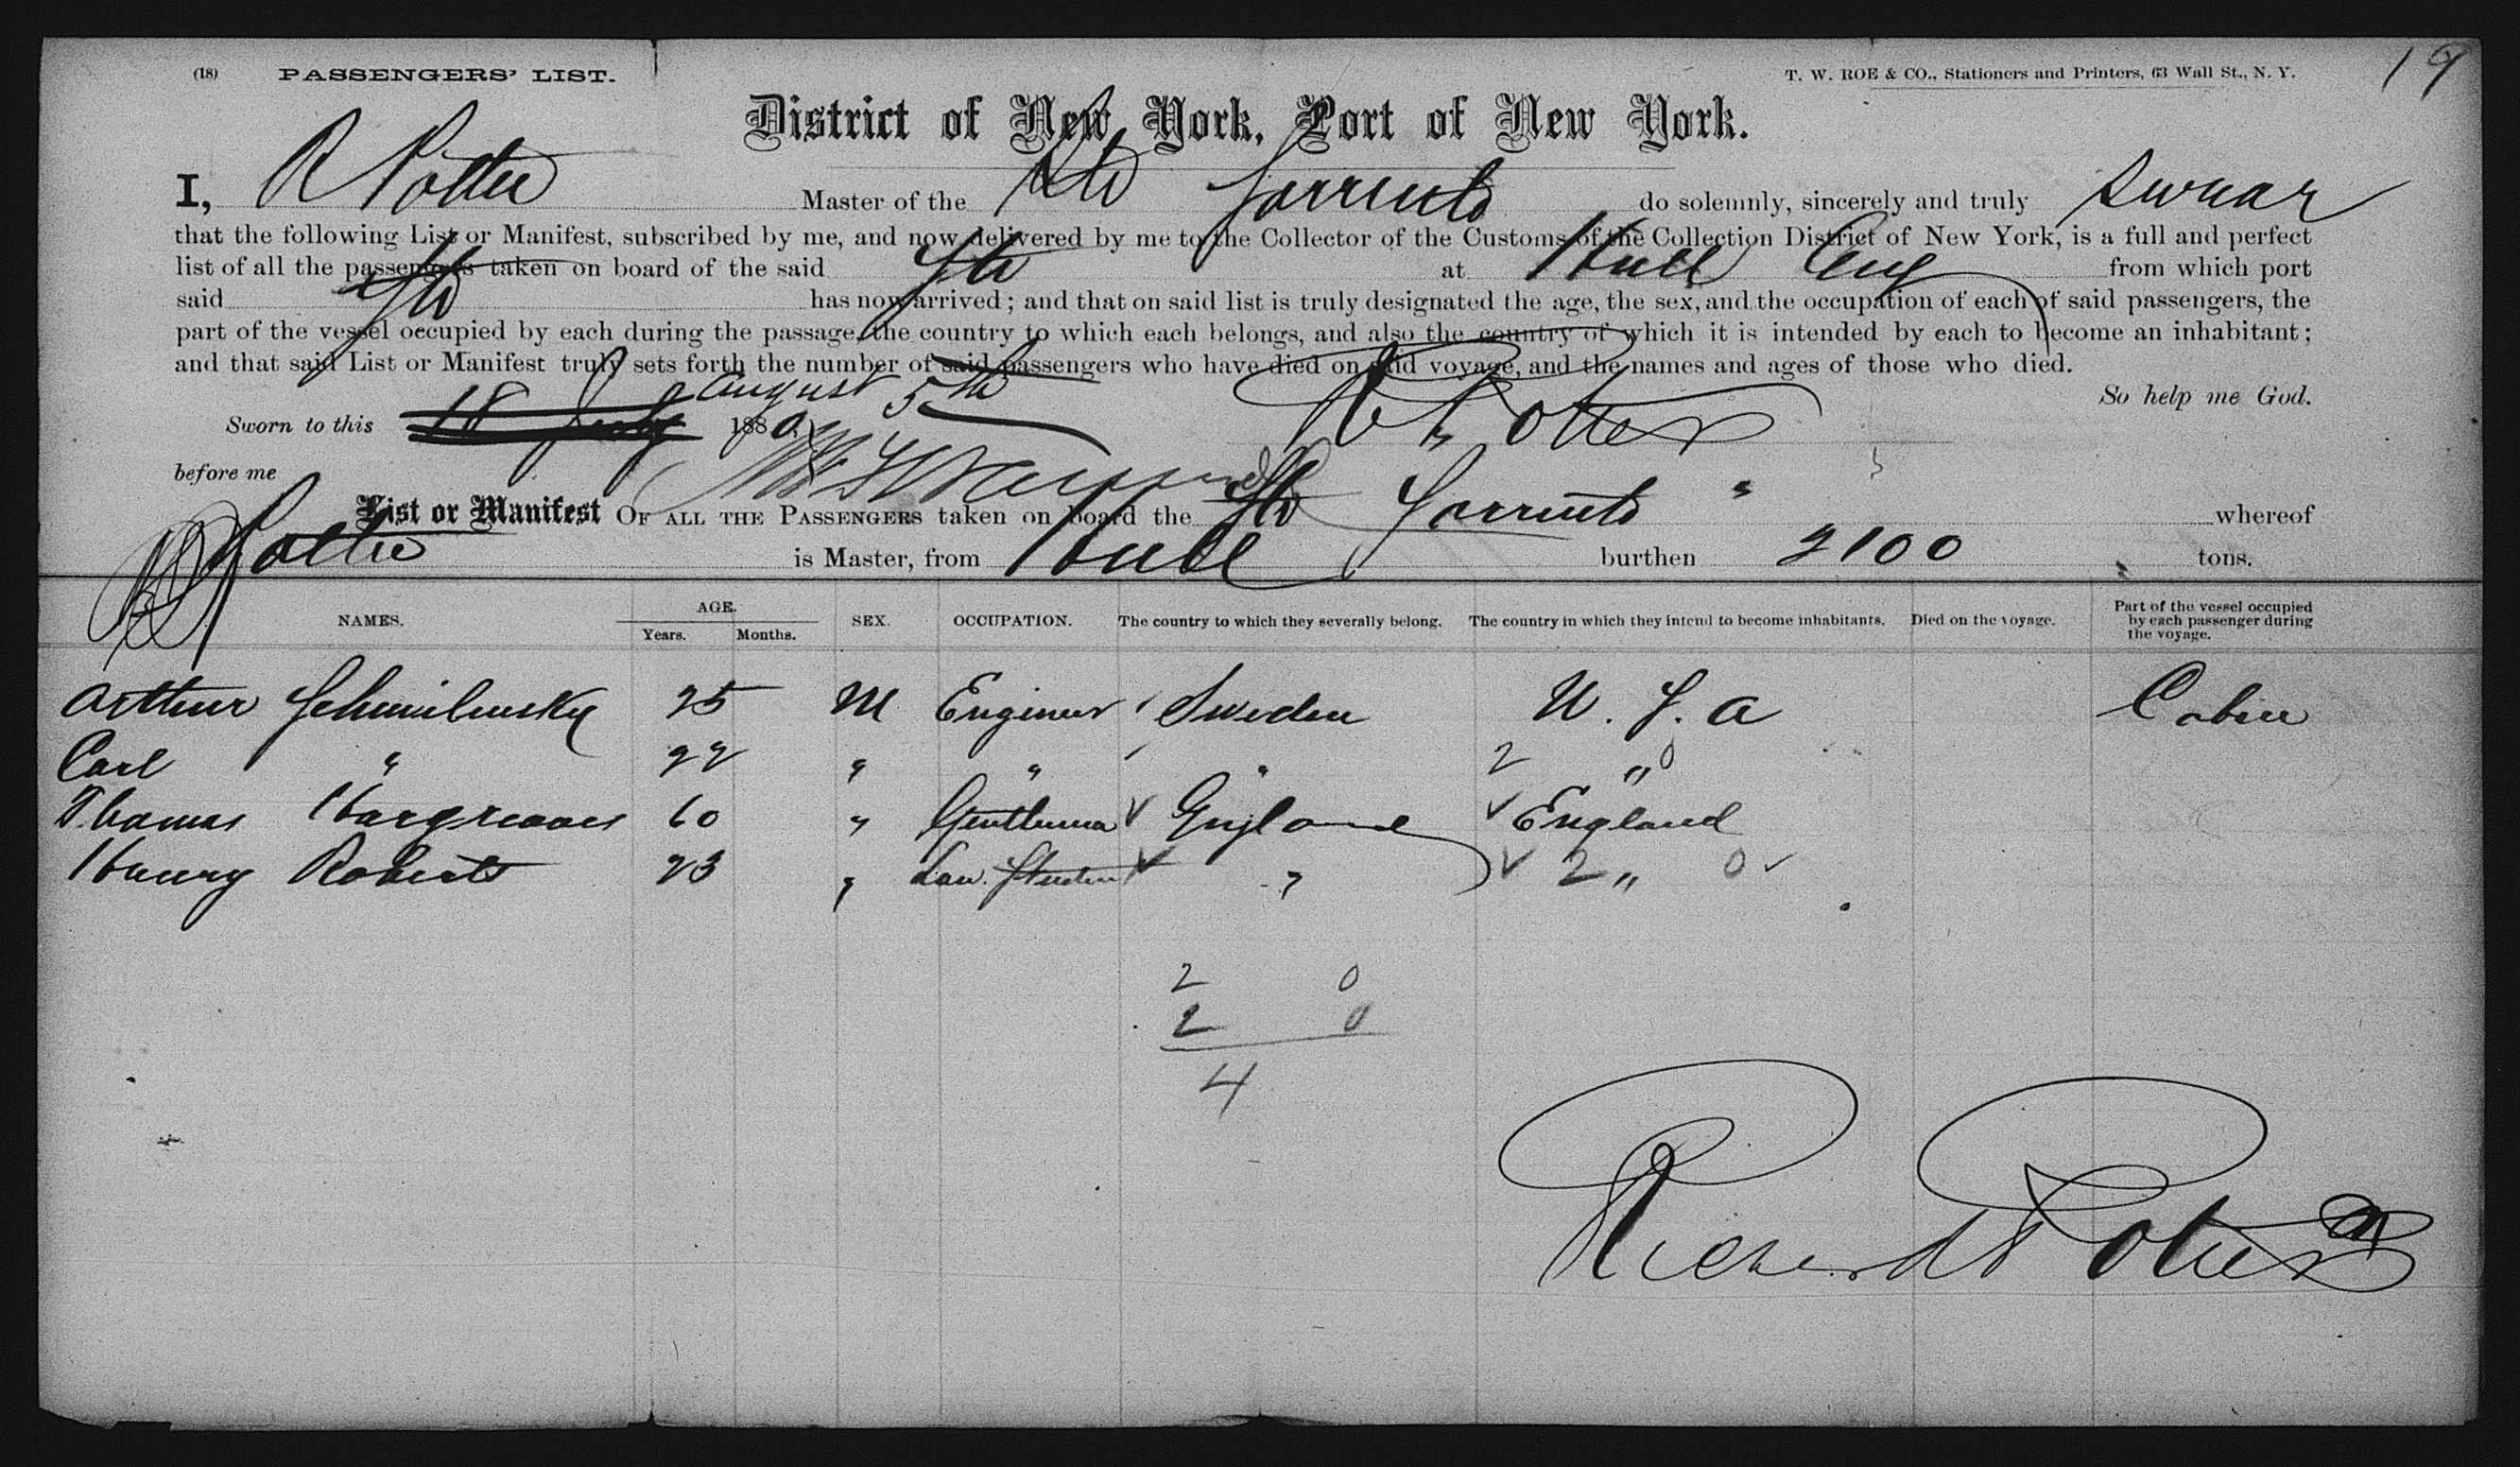 (18) PASSENGERS' LIST.
T. W. ROE & CO., Stationers and Printers, 63 Wall St., N. Y.
19
District of New York, Port of New York.
I, R Potter Master of the Str Sorrento do solemnly, sincerely and truly swear
that the following List or Manifest, subscribed by me, and now delivered by me to the Collector of the Customs of the Collection District of New York, is a full and perfect
list of all the passengers taken on board of the said Str at Hull Eng from which port
said Str has now arrived; and that on said list is truly designated the age, the sex, and the occupation of each of said passengers, the
part of the vessel occupied by each during the passage, the country to which each belongs, and also the country of which it is intended by each to become an inhabitant;
and that said List or Manifest truly sets forth the number of said passengers who have died on said voyage, and the names and ages of those who died.
So help me God.
Sworn to this 18 July August 5th 1880, R Potter
before me
List or Manifest OF ALL THE PASSENGERS taken on board the Str Sorrento " whereof
R Potter is Master, from Hull burthen 2100 tons.
NAMES. AGE. Years. Months. SEX. OCCUPATION. The country to which they severally belong. The country in which they intend to become inhabitants. Died on the voyage. Part of the vessel occupied by each passenger during the voyage.
Arthur Schmilensky 25 M Engineer Sweden U. S. A Cabin
Carl " 22 " " " 2 " 0
Thomas Hargreaves 60 " Gentleman England England
Henry Roberts 23 " Law. Student " 2 " 0
2 0
2 0
4
Richard Potter